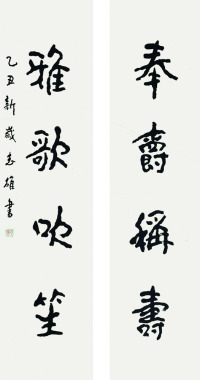 奉爵稱壽
雅歌吹笙
乙丑新歲志雄書